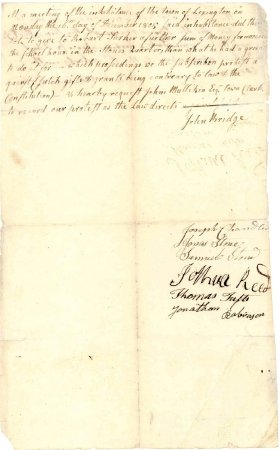 At a meeting of the inhabitants of the town of Lexington on
Monday the day of December said inhabitants did
to give to Robert Parker a further sum of Money for
the School house in the quarter, than what he had agreed
to do it for — which proceedings we the Subscribers protest a
gainst (Such gifts & grants being contrary to law & the
Constitution) & hereby request John Mulliken Esq. town Clerk
to record our protest as the law directs
John Bridge
Joseph
Stone
Samuel
Joshua Reed
Thomas Tufts
Jonathan Robinson